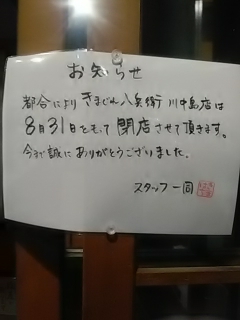 お知らせ
都合により きまじめ八兵衛 川中島店は
8月31日をもって 閉店させて頂きます。
今まで誠にありがとうございました。
スタッフ一同